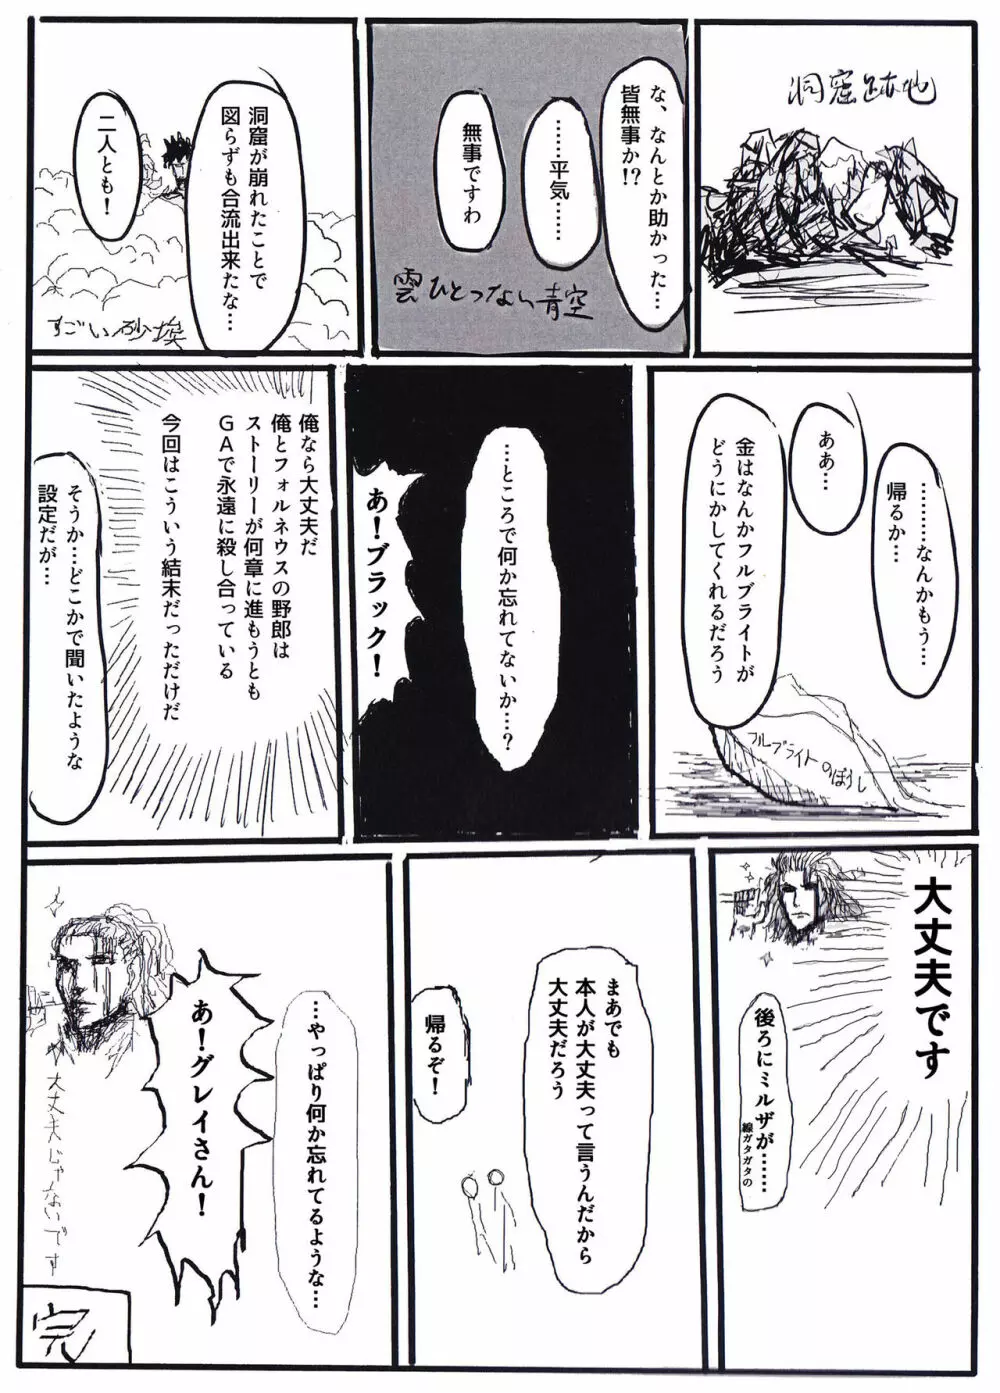 洞窟跡地
な、なんとか助かった…
皆無事か!?
……平気……
無事ですわ
雲ひとつない青空
洞窟が崩れたことで
図らずも合流出来たな…
二人とも！
すごい砂埃
…………なんかもう…
帰るか…
ああ…
金はなんかフルブライトが
どうにかしてくれるだろう
フルブライトのぼうし
…ところで何か忘れてないか…？
あ！ブラック！
俺なら大丈夫だ
俺とフォルネウスの野郎は
ストーリーが何章に進もうとも
ＧＡで永遠に殺し合っている
今回はこういう結末だっただけだ
そうか…どこかで聞いたような
設定だが…
大丈夫です
後ろにミルザが……
線ガタガタの
まあでも
本人が大丈夫って言うんだから
大丈夫だろう
帰るぞ！
…やっぱり何か忘れてるような…
あ！グレイさん！
大丈夫じゃないです
完